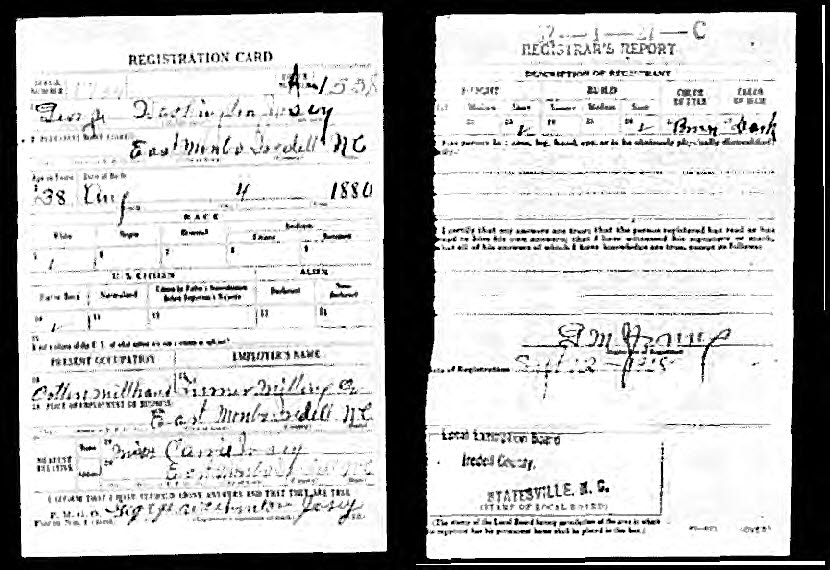 REGISTRATION CARD
SERIAL NUMBER 1734 ORDER NUMBER A 1558
George Washington Josey
PERMANENT HOME ADDRESS
East Monbo Iredell NC
Age in Years Date of Birth
38 Aug 4 1880
RACE
White Negro Oriental Indian
5 6 7 8 9
U. S. CITIZEN ALIEN
Native Born Naturalized Citizen by Father's Naturalization Before Registrant's Majority Declarant Non-Declarant
10 11 12 13 14
15
If not a citizen of the U. S., of what nation are you a citizen or subject?
PRESENT OCCUPATION EMPLOYER'S NAME
Cotton mill hand Turner Milling Co
PLACE OF EMPLOYMENT OR BUSINESS
East Monbo Iredell NC
NEAREST RELATIVE Name Carrie Josey
Address East Monbo Iredell NC
I AFFIRM THAT I HAVE VERIFIED ABOVE ANSWERS AND THAT THEY ARE TRUE
P. M. G. O. George Washington Josey
Form No. 1
1—21—C
REGISTRAR'S REPORT
DESCRIPTION OF REGISTRANT
HEIGHT BUILD COLOR OF EYES COLOR OF HAIR
Medium Short Slender Medium Stout
Brown Dark
Has person lost arm, leg, hand, eye, or is he obviously physically disqualified?
I certify that my answers are true; that the person registered has read or has
had read to him his own answers; that I have witnessed his signature or mark,
and that all of his answers of which I have knowledge are true, except as follows:
Date of Registration Sept 12 - 1918
Local Exemption Board
Iredell County,
STATESVILLE, N. C.
(STAMP OF LOCAL BOARD)
(The stamp of the Local Board having jurisdiction of the area in which
the registrant has his permanent home shall be placed in this box.)
(OVER)